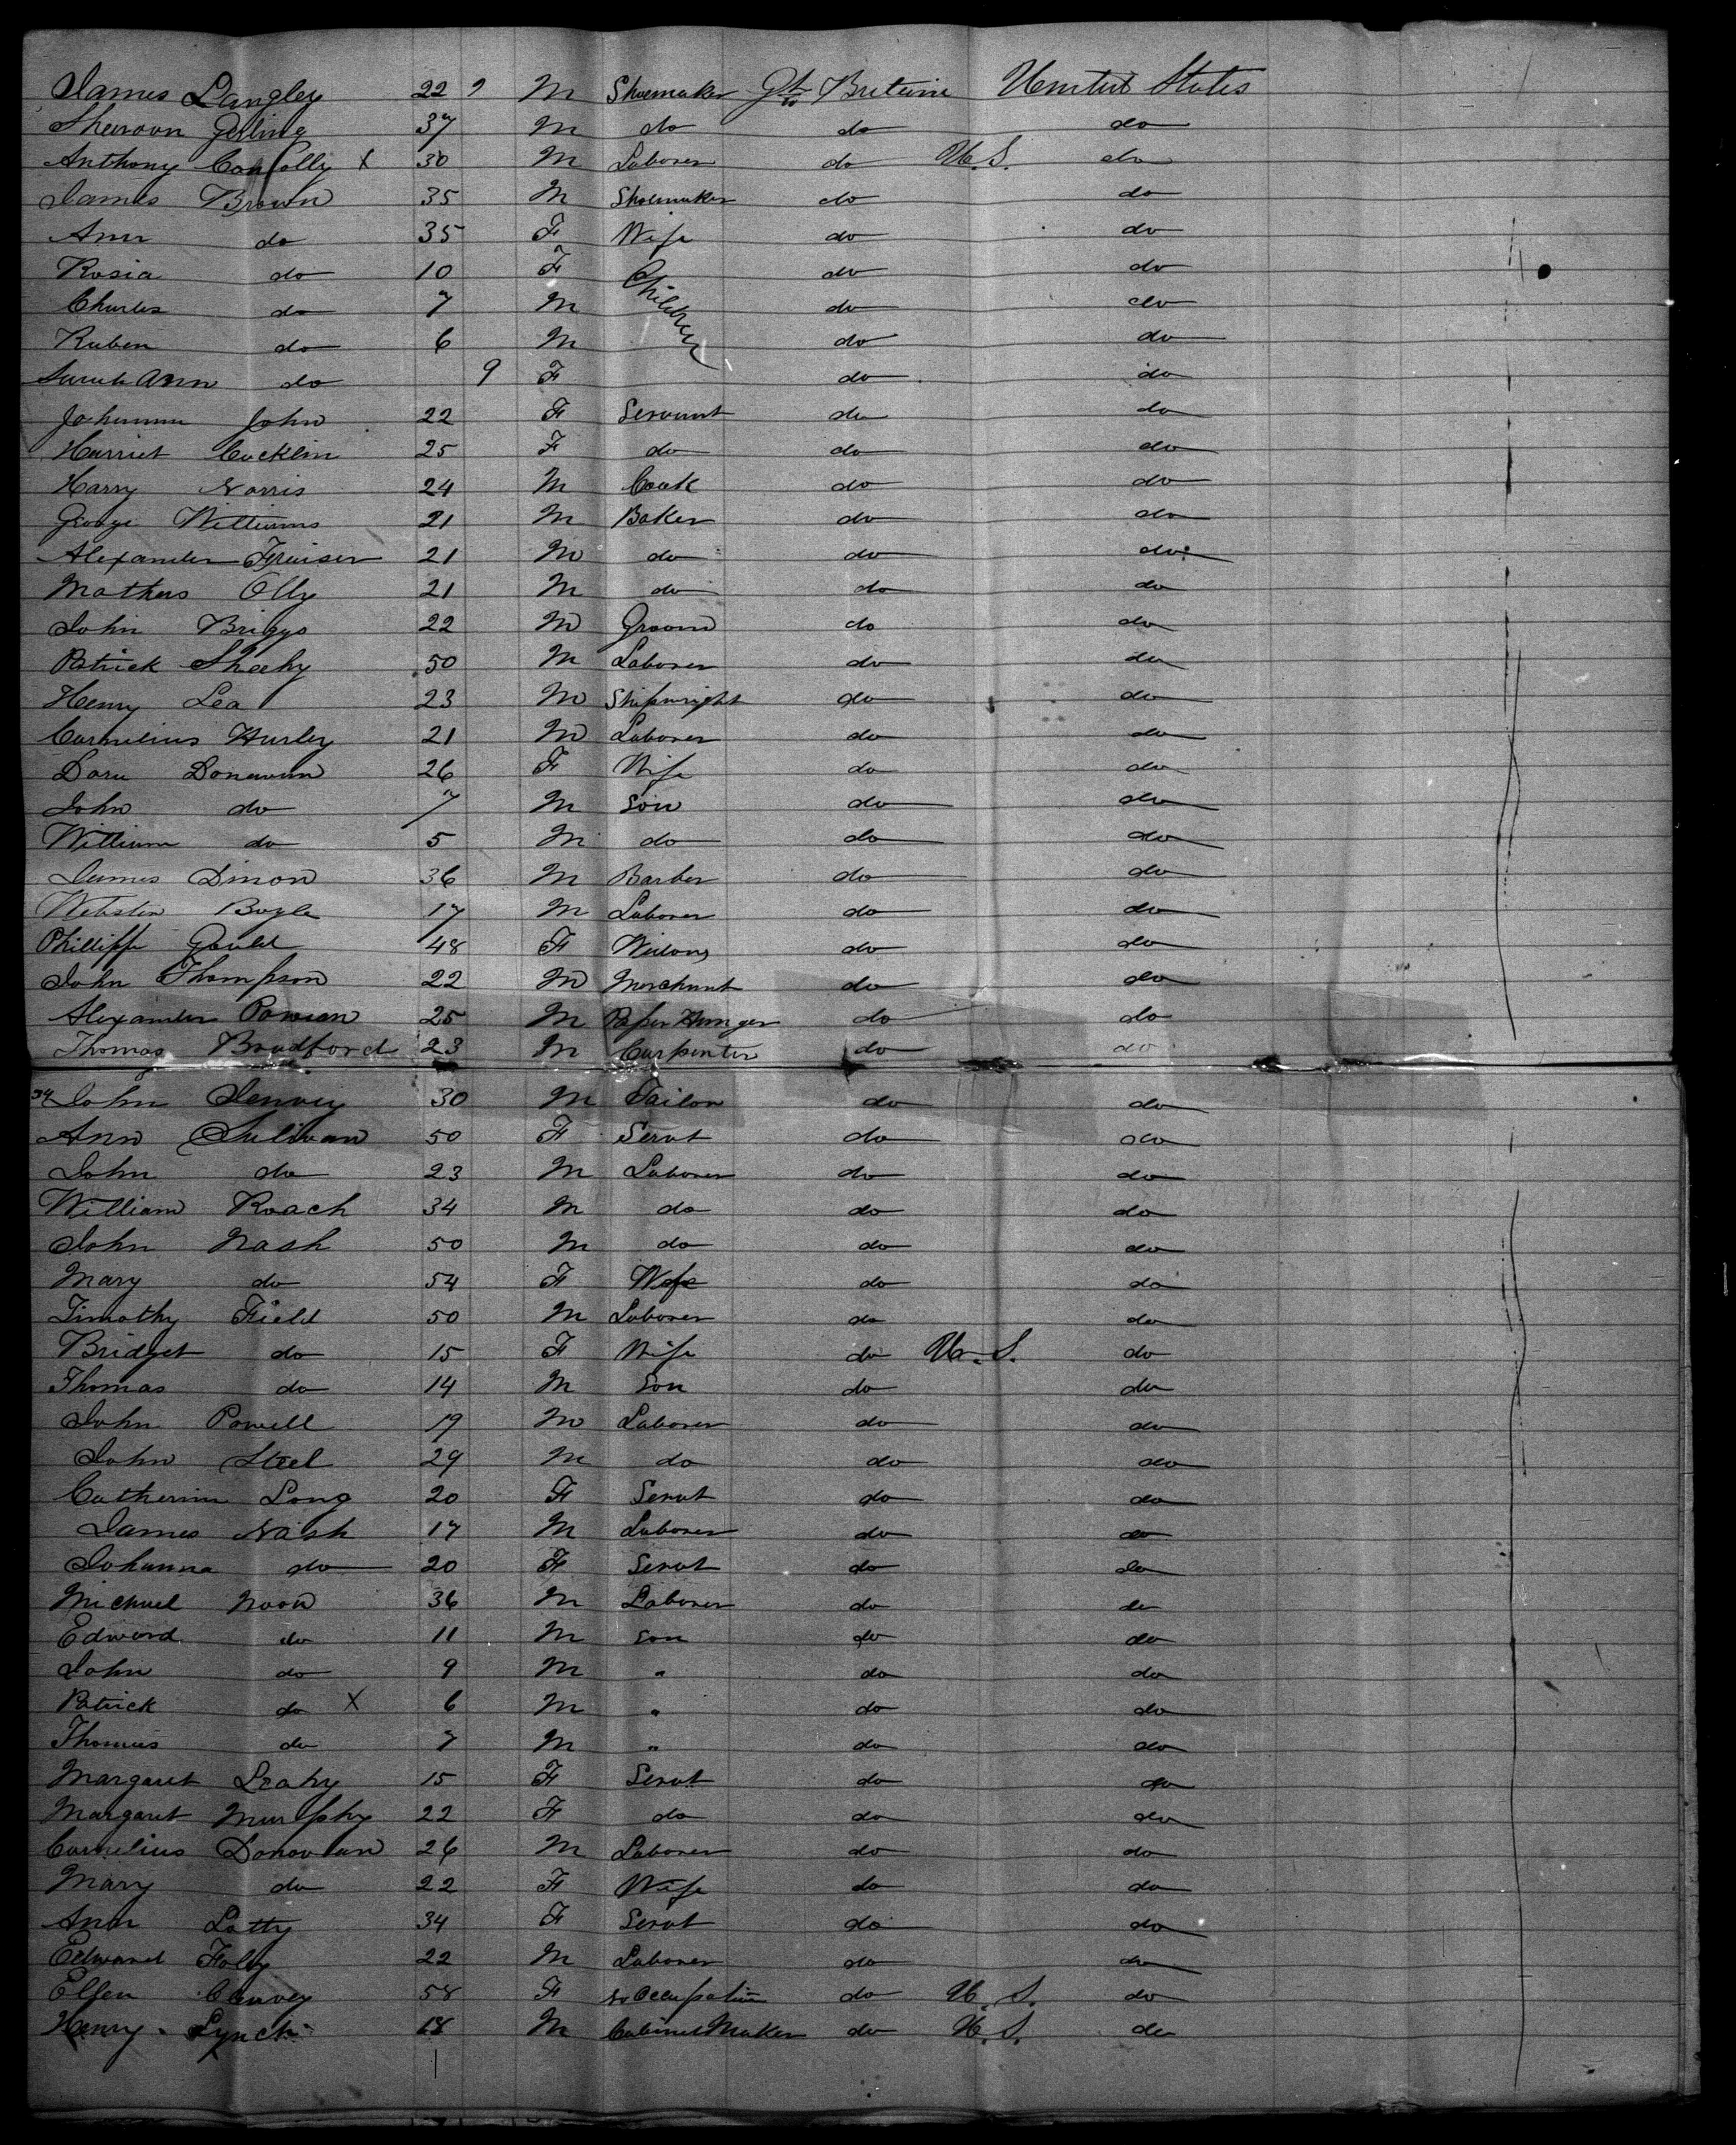 James Langley 22 9 M Shoemaker Gt Britain United States
Sharoon Gerling 37 M do do do
Anthony Connolly X 30 M Laborer do U.S. do
James Brown 35 M Shoemaker do do
Ann do 35 F Wife do do
Rosia do 10 F Children do do
Charles do 7 M do do
Ruben do 6 M do do
Sarah Ann do 9 F do do
Johanna John 22 F Servant do do
Harriet Cocklin 25 F do do do
Harry Norris 24 M Cook do do
George Williams 21 M Baker do do
Alexander Fraiser 21 M do do do
Mathers Olly 21 M do do do
John Briggs 22 M Groom do do
Patrick Sheehy 50 M Laborer do do
Henry Lea 23 M Shipwright do do
Cornelius Hurley 21 M Laborer do do
Dora Donavan 26 F Wife do do
John do 7 M Son do do
William do 5 M do do do
James Dinon 36 M Barber do do
Webster Bogle 17 M Laborer do do
Philliffe Gould 48 F Widow do do
John Thompson 22 M Merchant do do
Alexander 25 M Paper Hanger do do
Thomas Bradford 23 M Carpenter do do
34 John 30 M Tailor do do
Ann Sulivan 50 F Servt do do
John do 23 M Laborer do do
William Roach 34 M do do do
John Nash 50 M do do do
Mary do 54 F Wife do do
Timothy Field 50 M Laborer do do
Bridget do 15 F Wife do U.S. do
Thomas do 14 M Son do do
John Powell 19 M Laborer do do
John Steel 29 M do do do
Catherine Long 20 F Servt do do
James Nash 17 M Laborer do do
Johanna do 20 F Servt do do
Michael Noon 36 M Laborer do do
Edward do 11 M son do do
John do 9 M " do do
Patrick do X 6 M " do do
Thomas do 7 M " do do
Margaret Leahy 15 F Servt do do
Margaret Murphy 22 F do do do
Cornelius Donovan 26 M Laborer do do
Mary do 22 F Wife do do
Ann Latty 34 F Servt do do
Edward Foley 22 M Laborer do do
Ellen 58 F no Occupation do U.S. do
Henry Lynch 18 M Cabinet Maker do U.S. do